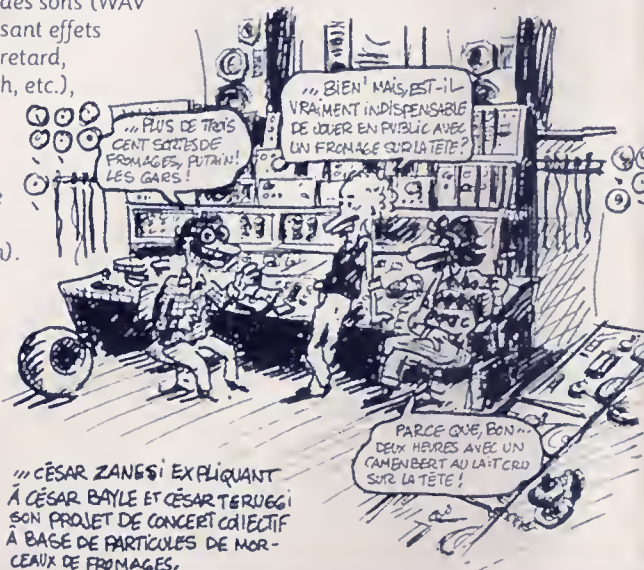 des sons (WAV
sant effets
retard,
h, etc.),
... PLUS DE TROIS
CENT SORTES DE
FROMAGES, PUTAIN!
LES GARS!
... BIEN! MAIS, EST-IL
VRAIMENT INDISPENSABLE
DE JOUER EN PUBLIC AVEC
UN FROMAGE SUR LA TÊTE?
PARCE QUE, BON...
DEUX HEURES AVEC UN
CAMENBERT AU LAIT CRU
SUR LA TÊTE!
... CÉSAR ZANESI EXPLIQUANT
À CÉSAR BAYLE ET CÉSAR TERUGGI
SON PROJET DE CONCERT COLLECTIF
À BASE DE PARTICULES DE MOR-
CEAUX DE FROMAGES.